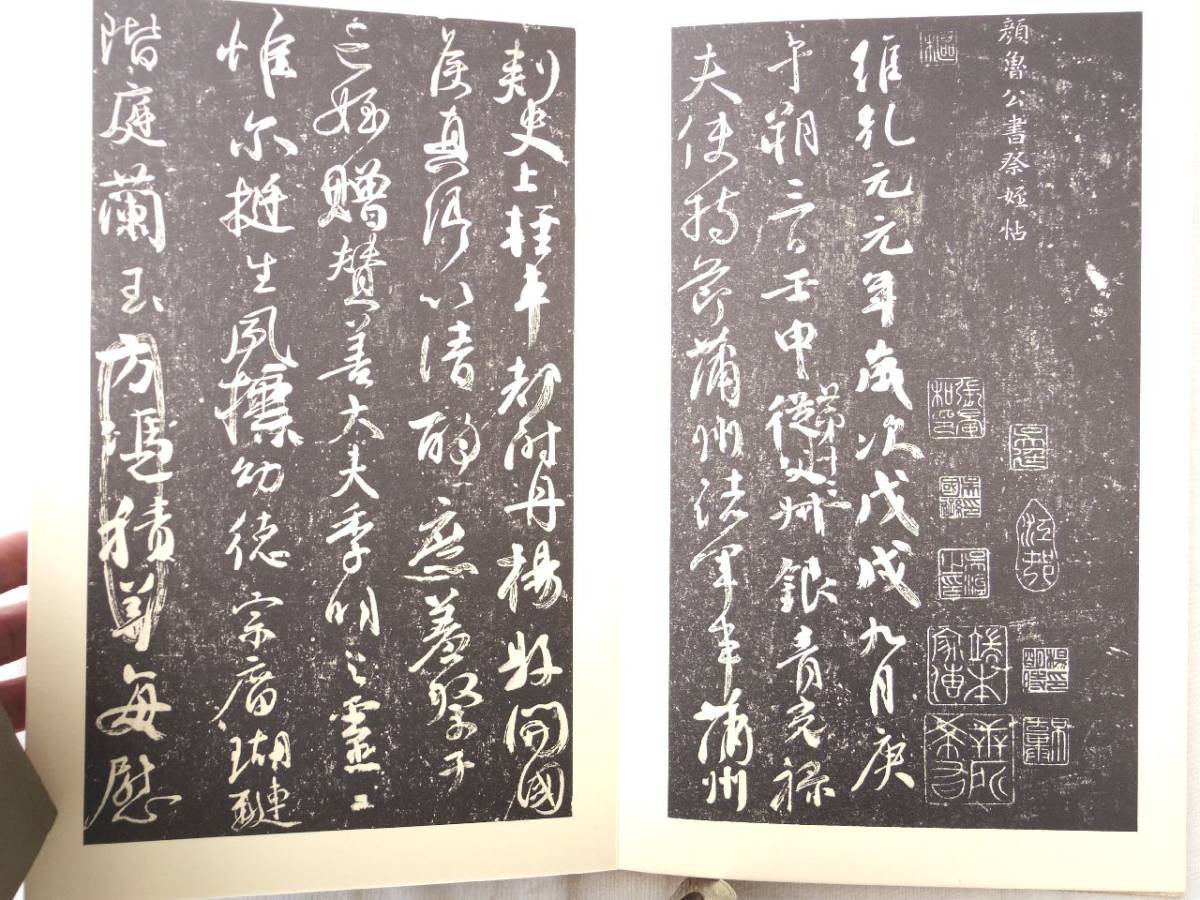 顔魯公書祭姪帖
維乾元元年歲次戊戌九月庚
午朔三日壬申從父銀青光祿
第十三叔
夫使持節蒲州諸軍事蒲州
刺史上輕車都尉丹楊縣開國
侯真卿以清酌庶羞祭于
亡姪贈贊善大夫季明之靈
惟爾挺生夙標幼德宗廟瑚璉
階庭蘭玉方憑積善每慰
江邨